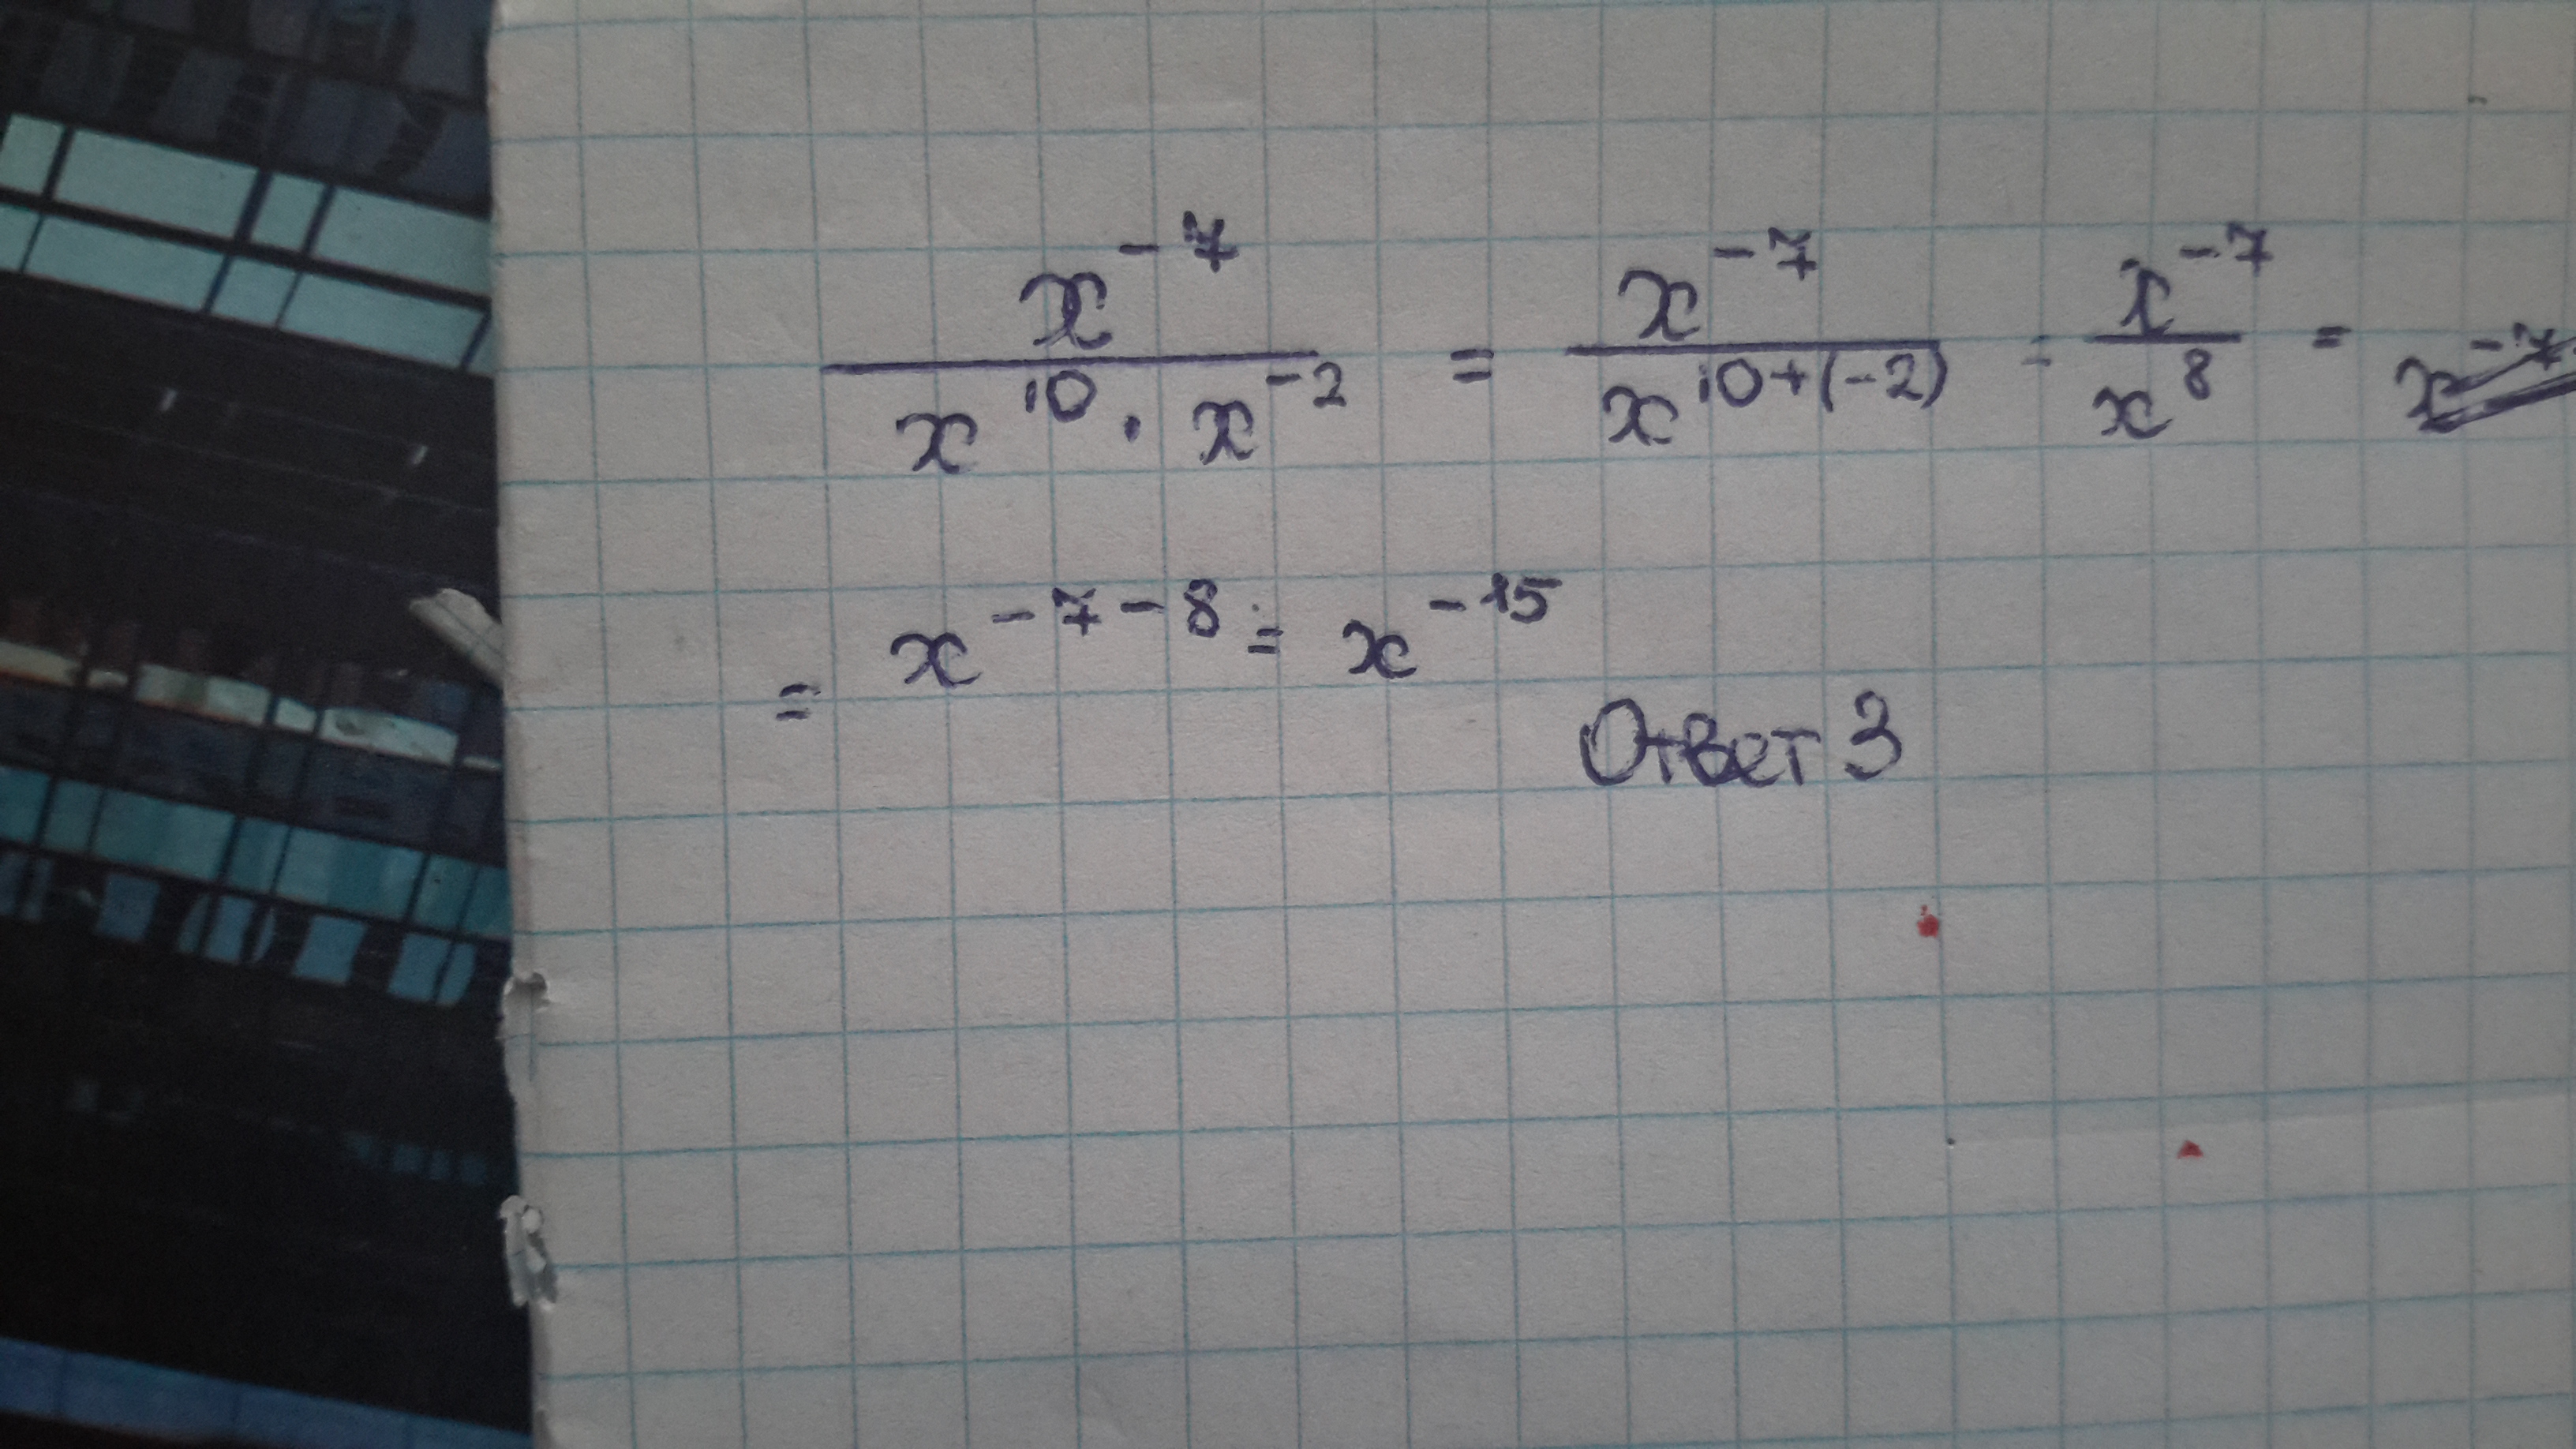 x⁻⁷ / x¹⁰ · x⁻² = x⁻⁷ / x¹⁰⁺⁽⁻²⁾ = x⁻⁷ / x⁸ =
= x⁻⁷⁻⁸ = x⁻¹⁵
Ответ 3